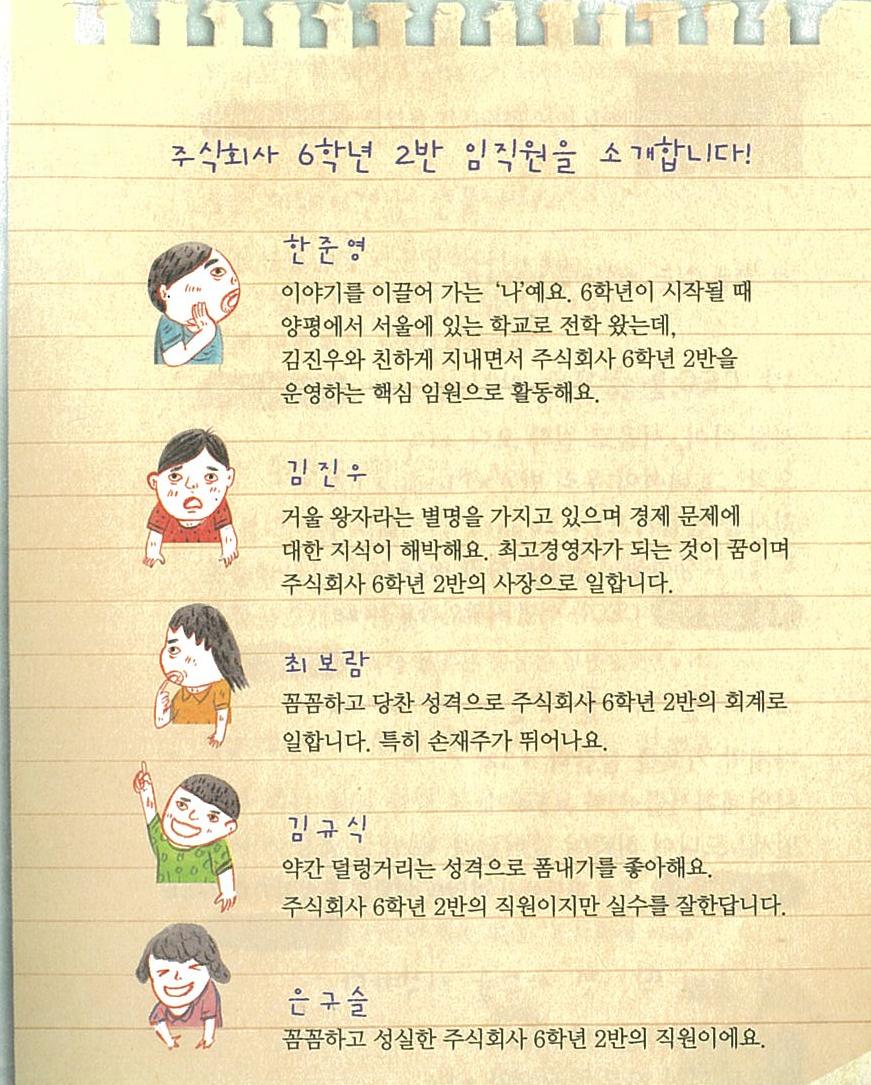 주식회사 6학년 2반 임직원을 소개합니다!
한준영
이야기를 이끌어 가는 ‘나’예요. 6학년이 시작될 때
양평에서 서울에 있는 학교로 전학 왔는데,
김진우와 친하게 지내면서 주식회사 6학년 2반을
운영하는 핵심 임원으로 활동해요.
김진우
거울 왕자라는 별명을 가지고 있으며 경제 문제에
대한 지식이 해박해요. 최고경영자가 되는 것이 꿈이며
주식회사 6학년 2반의 사장으로 일합니다.
최보람
꼼꼼하고 당찬 성격으로 주식회사 6학년 2반의 회계로
일합니다. 특히 손재주가 뛰어나요.
김규식
약간 덜렁거리는 성격으로 폼내기를 좋아해요.
주식회사 6학년 2반의 직원이지만 실수를 잘한답니다.
은규슬
꼼꼼하고 성실한 주식회사 6학년 2반의 직원이에요.